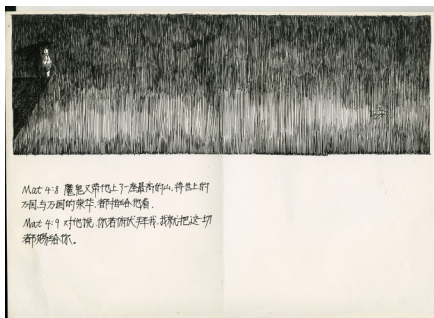 Mat 4:8 魔鬼又带他上了一座最高的山,将世上的
万国与万国的荣华,都指给他看.
Mat 4:9 对他说,你若俯伏拜我,我就把这一切
都赐给你。